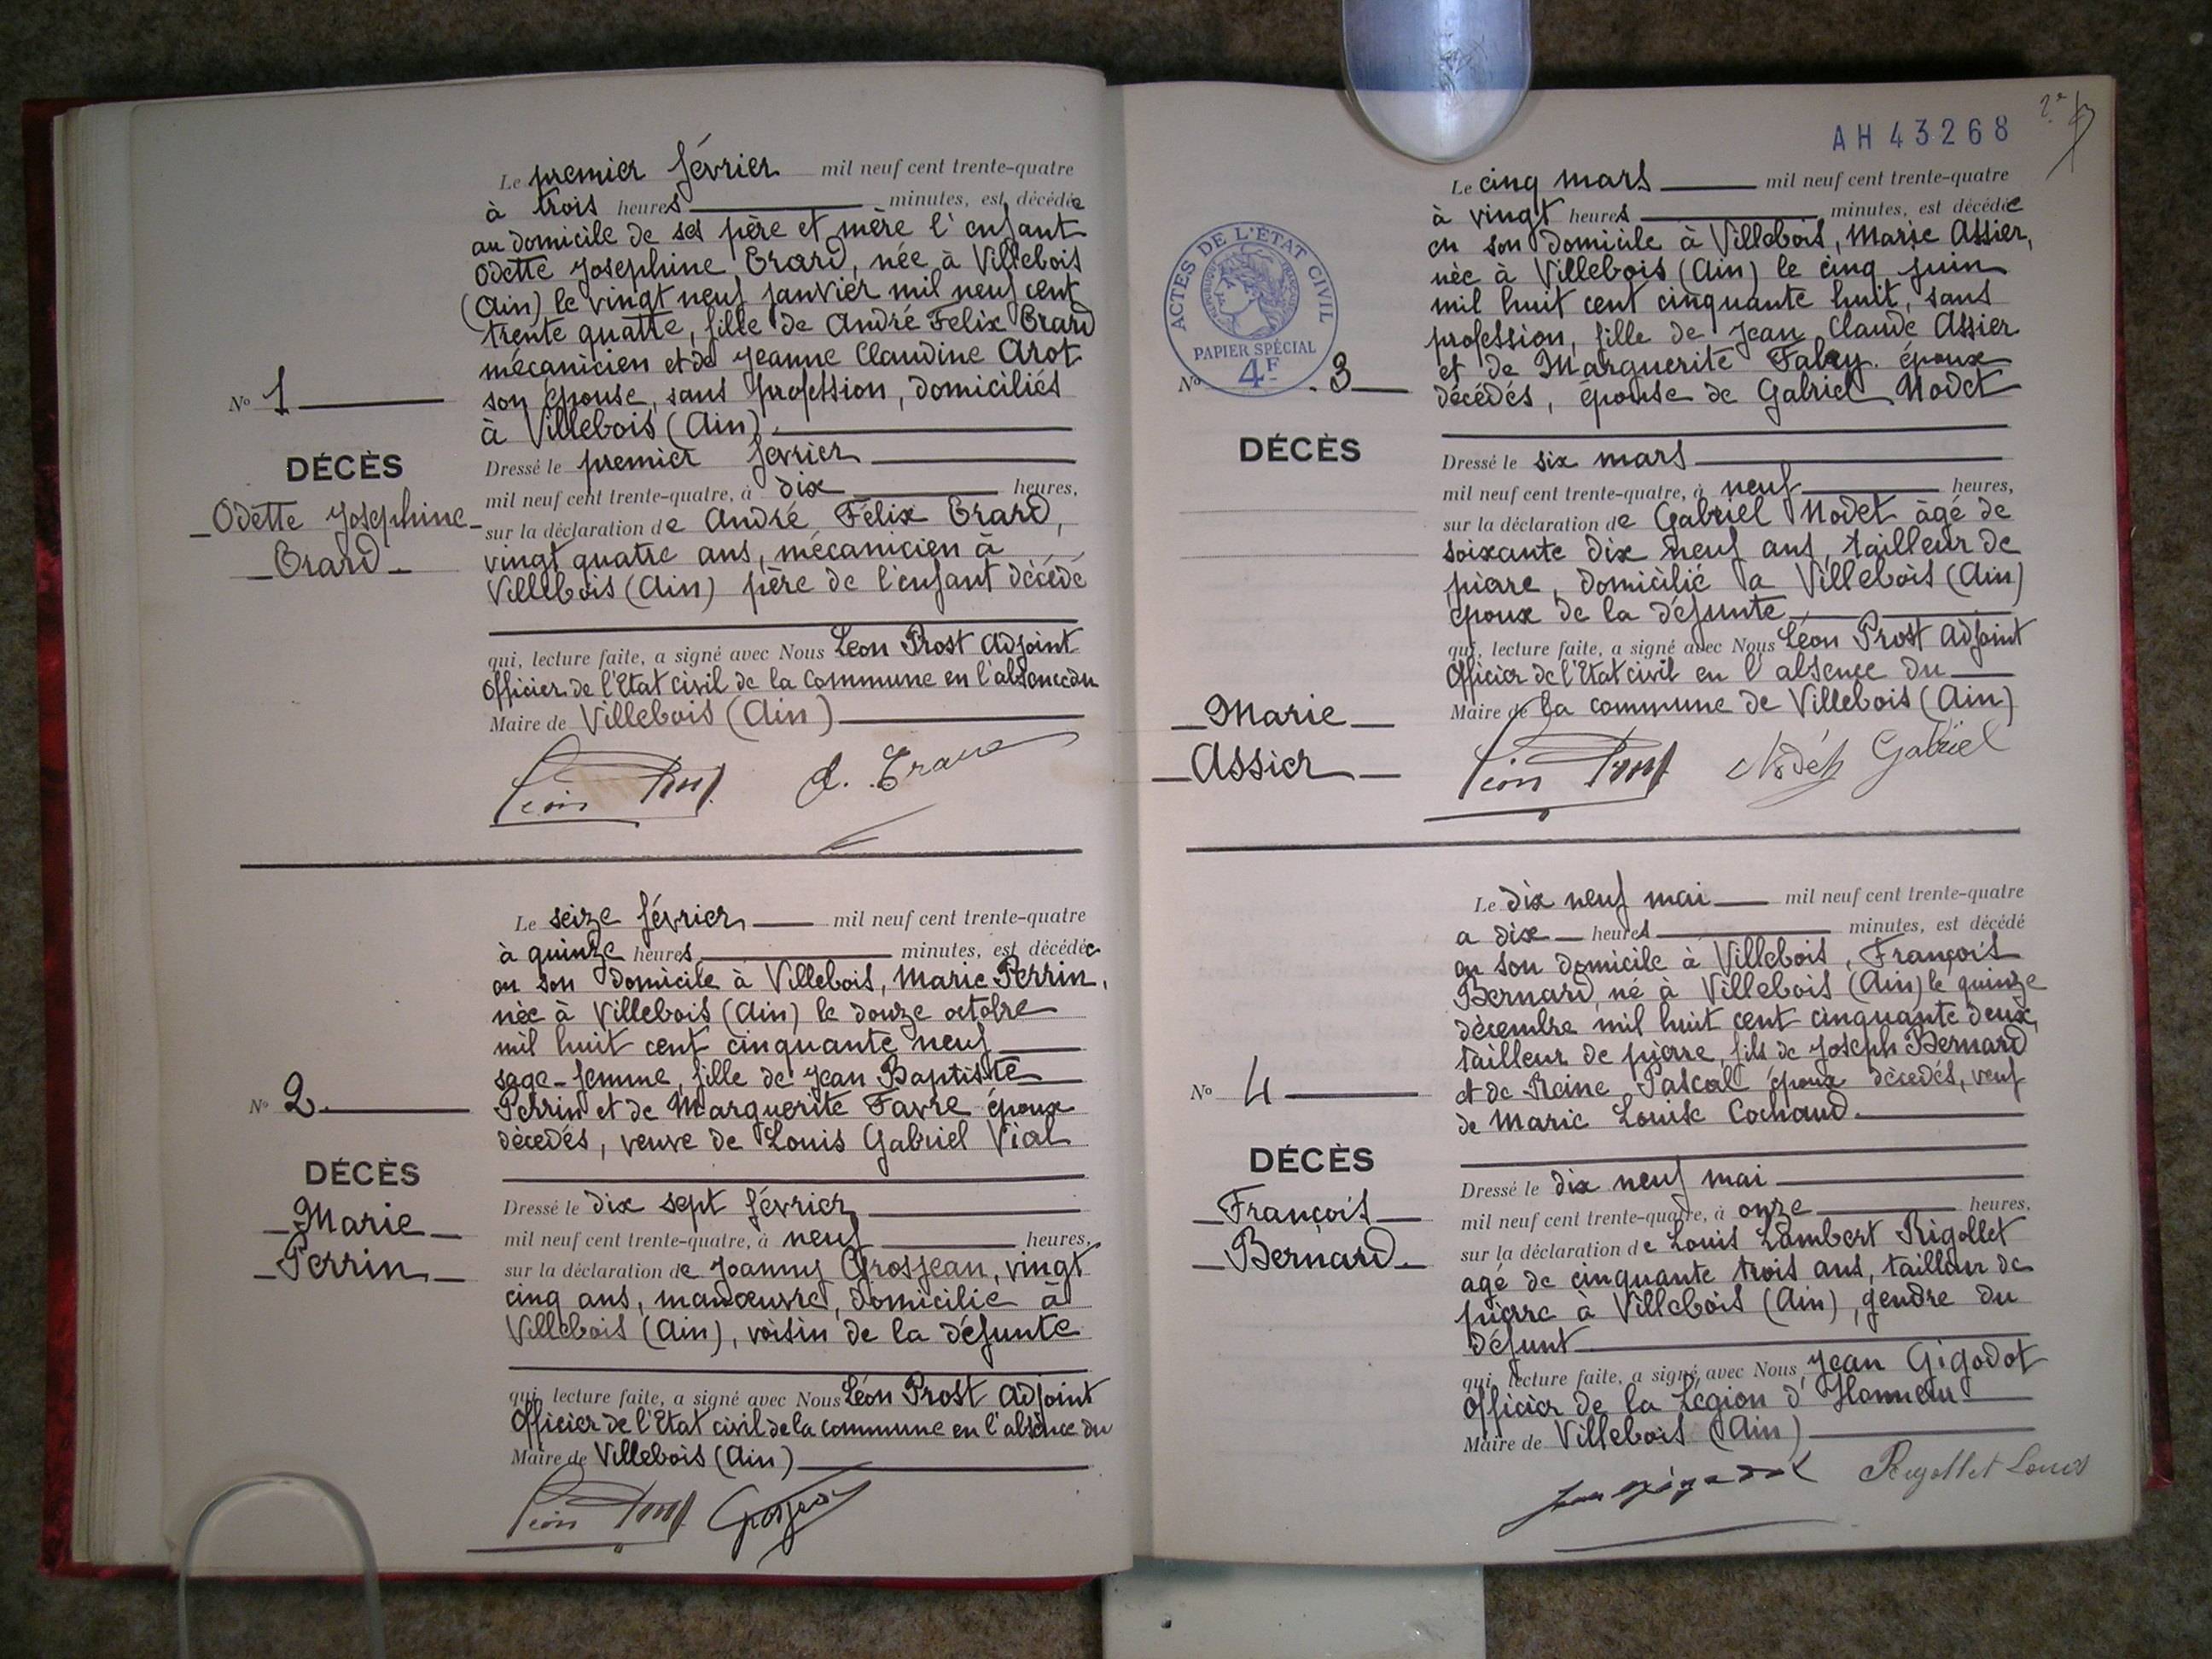 Le premier février mil neuf cent trente-quatre
à trois heures minutes, est décédée
au domicile de ses père et mère l'enfant
Odette Josephine Erard, née à Villebois
(Ain) le vingt neuf janvier mil neuf cent
trente quatre, fille de André Felix Erard
mécanicien et de Jeanne Claudine Arot
son épouse, sans profession, domiciliés
à Villebois (Ain).
Nº 1
DÉCÈS
Odette Josephine
Erard
Dressé le premier février
mil neuf cent trente-quatre, à dix heures,
sur la déclaration de André Félix Erard,
vingt quatre ans, mécanicien à
Villebois (Ain) père de l'enfant décédé
qui, lecture faite, a signé avec Nous Léon Prost Adjoint
Officier de l'Etat civil de la Commune en l'absence du
Maire de Villebois (Ain)
Léon Prost
Le seize février mil neuf cent trente-quatre
à quinze heures minutes, est décédée
en son domicile à Villebois, Marie Perrin,
née à Villebois (Ain) le douze octobre
mil huit cent cinquante neuf
sage-femme, fille de Jean Baptiste
Perrin et de Marguerite Favre époux
décedés, veuve de Louis Gabriel Vial
Nº 2
DÉCÈS
Marie
Perrin
Dressé le dix sept février
mil neuf cent trente-quatre, à neuf heures,
sur la déclaration de Joanny Grosjean, vingt
cinq ans, manœuvre, domicilié à
Villebois (Ain), voisin de la défunte
qui, lecture faite, a signé avec Nous Léon Prost Adjoint
Officier de l'Etat civil de la commune en l'absence du
Maire de Villebois (Ain)
Léon Prost Grosjean
AH 43268
Le cinq mars mil neuf cent trente-quatre
à vingt heures minutes, est décédée
en son domicile à Villebois, Marie Assier,
née à Villebois (Ain) le cinq juin
mil huit cent cinquante huit, sans
profession, fille de Jean Claude Assier
et de Marguerite époux
décédés, épouse de Gabriel Nodet
ACTES DE L'ÉTAT CIVIL
RÉPUBLIQUE FRANÇAISE
PAPIER SPÉCIAL
4F
Nº 3
DÉCÈS
Marie
Assier
Dressé le six mars
mil neuf cent trente-quatre, à neuf heures,
sur la déclaration de Gabriel Nodet âgé de
soixante dix neuf ans, tailleur de
pierre, domicilié à Villebois (Ain)
époux de la défunte
qui, lecture faite, a signé avec Nous Léon Prost Adjoint
Officier de l'Etat civil en l'absence du
Maire de la commune de Villebois (Ain)
Léon Prost Nodet Gabriel
Le dix neuf mai mil neuf cent trente-quatre
a dix heures minutes, est décédé
en son domicile à Villebois, François
Bernard, né à Villebois (Ain) le quinze
décembre mil huit cent cinquante deux,
tailleur de pierre, fils de Joseph Bernard
et de Reine Pascal époux décedés, veuf
de Marie Louise Cochaud.
Nº 4
DÉCÈS
François
Bernard
Dressé le dix neuf mai
mil neuf cent trente-quatre, à onze heures,
sur la déclaration de Louis Lambert Rigollet
agé de cinquante trois ans, tailleur de
pierre à Villebois (Ain), gendre du
défunt
qui, lecture faite, a signé avec Nous, Jean Gigodot
Officier de la Légion d'Honneur
Maire de Villebois (Ain)
Jean Gigodot Rigollet Louis